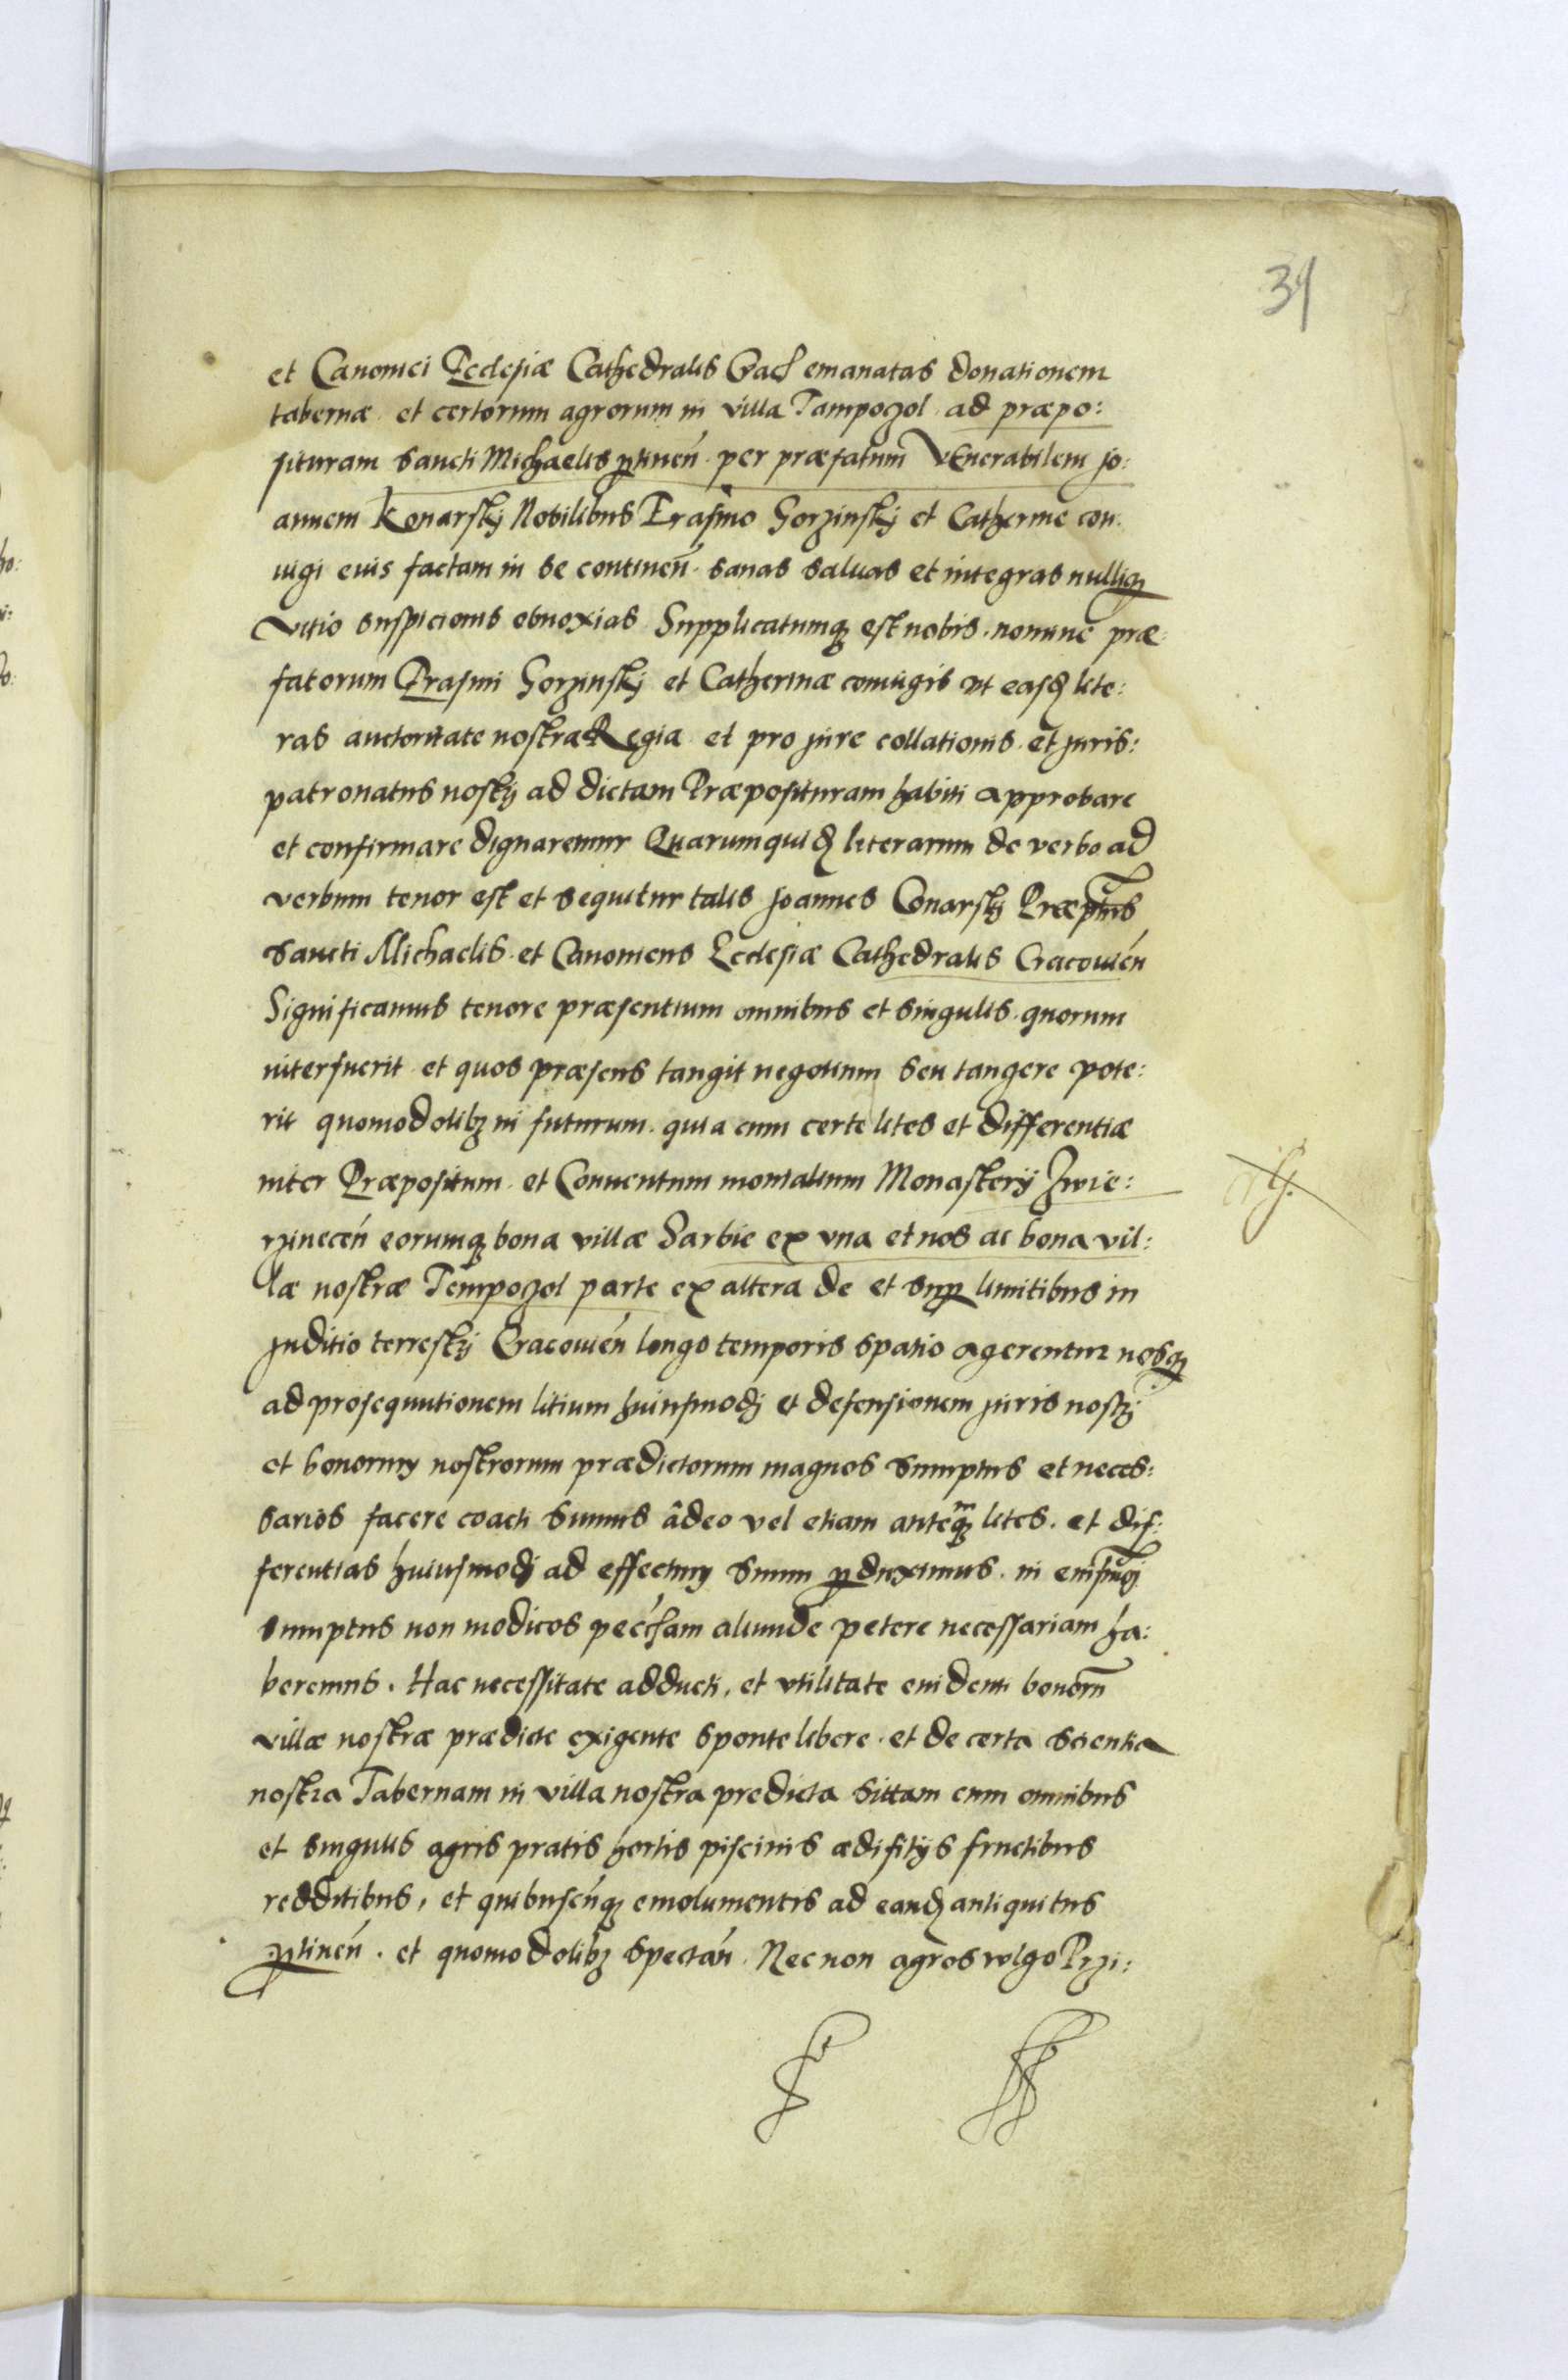 39
et Canonici Ecclesiæ Cathedralis Crac̄ emanatas donationem
tabernæ et certorum agrorum in villa Tampoczol ad præpo:
situram Sancti Michaelis ꝑtineń per præfatum Venerabilem Jo:
annem Konarskj Nobilibus Erasmo Gorzinskj et Catherine con:
iugi eius factam in se contineń sanas salvas et integras nulliqꝫ
vitio suspicionis obnoxias Supplicatumqꝫ est nobis nomine præ:
fatorum Erasmi Gorzinskj et Catherinæ coniugis vt easđ lite:
ras auctoritate nostra Regia et pro jure collationis et juris:
patronatus nostrj ad dictam Præposituram habiti approbare
et confirmare dignaremur Quarumquiđ literarum de verbo ad
verbum tenor est et sequitur talis Joannes Conarskj Præptus
Sancti Michaelis et Canonicus Ecclesiæ Cathedralis Cracovień
Significamus tenore præsentium omnibus et singulis quorum
interfuerit et quos præsens tangit negotium seu tangere pote:
rit quomodolibꝫ in futurum quia cum certe lites et differentiæ
inter Præpositum et Conuentum monialium Monasterij Zwie:
rzineceń eorumqꝫ bona villæ Sarbie ex vna et nos ac bona vil:
læ nostræ Tempoczol parte ex altera de et suꝑ limitibus in
juditio terrestrj Cracovień longo temporis spatio agerentur nosqꝫ
ad prosequutionem litium huiusmodj et defensionem juris nostrj
et bonorum nostrorum prædictorum magnos sumptus et neces:
sarios facere coacti sumus âdeo vel etiam anteqꝫm lites et dif:
ferentias huiusmodj ad effectum suum ꝑduximus in eiusmodj
sumptus non modicos pec̄iam aliunde petere necessariam ha:
beremus. Hac necessitate adducti, et vtilitate euidenti bonorum
villæ nostræ prædicte exigente sponte libere et de certa scientia
nostra Tabernam in villa nostra predicta sittam cum omnibus
et singulis agris pratis hortis piscinis ædifitijs fructibus
redditibus, et quibuscunqꝫ emolumentis ad eanđ antiquitus
ꝑtineń. et quomodolibꝫ spectań. Nec non agros volgo Przi: